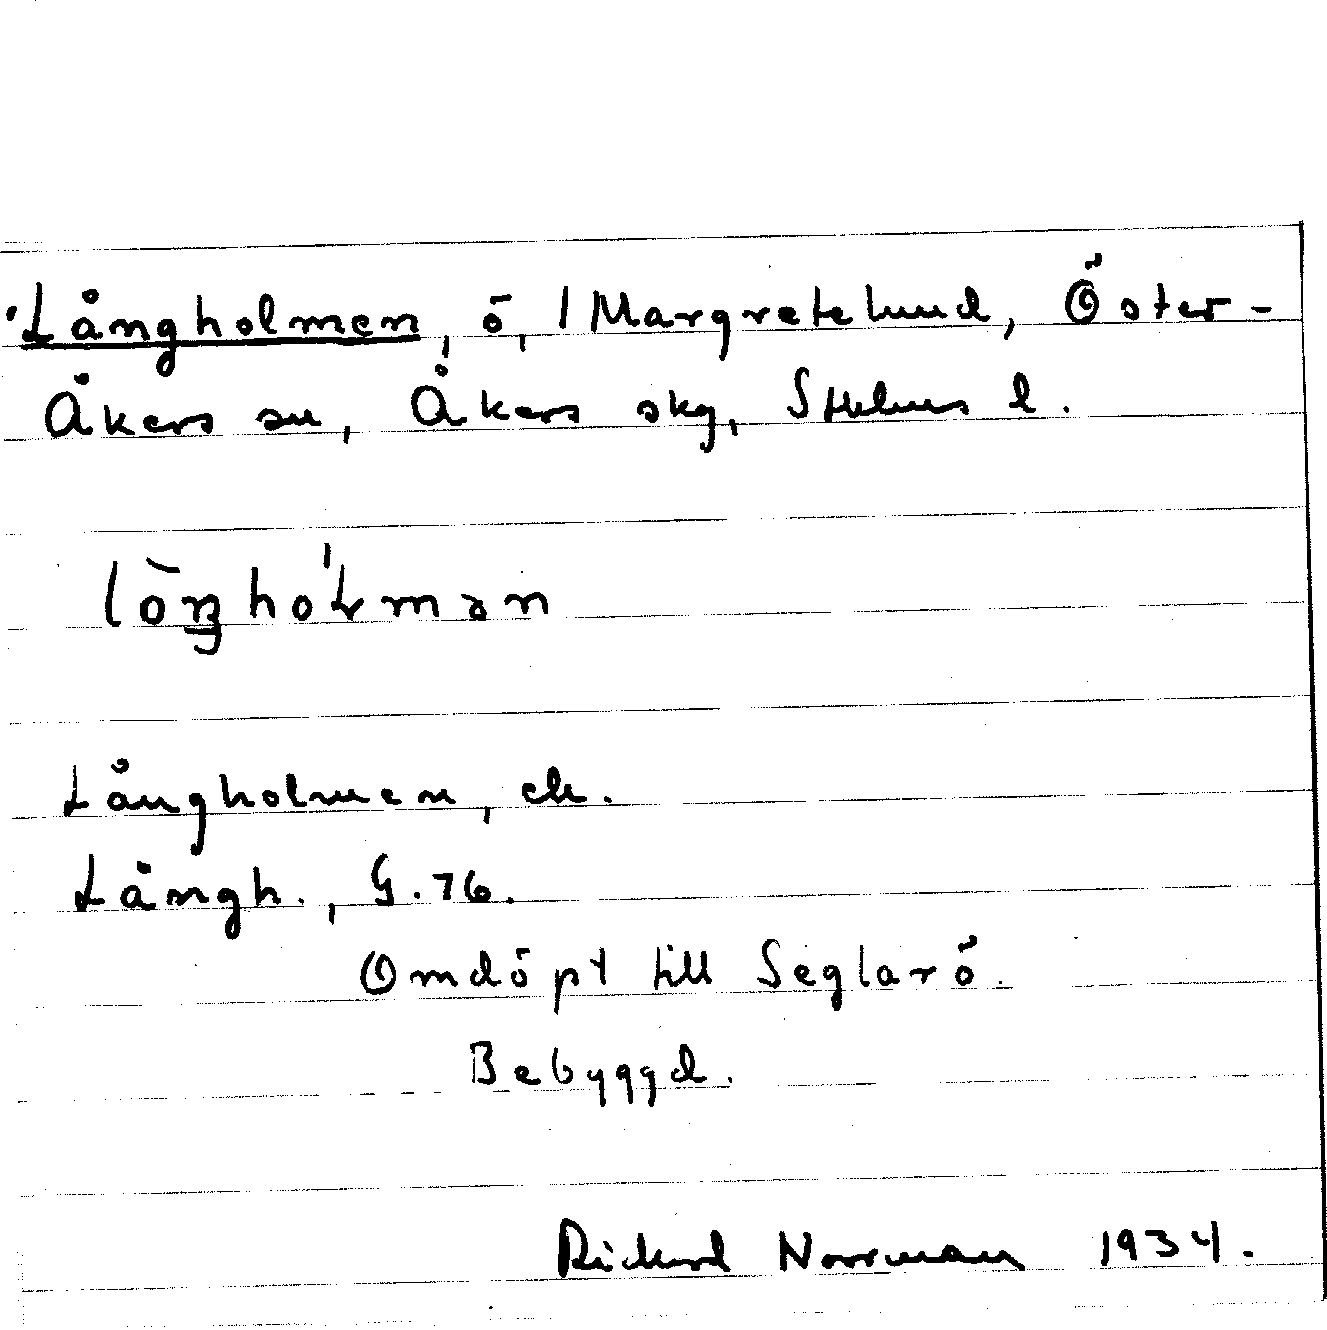 Långholmen, ö, / Margretelund, Öster-
Åkers sn, Åkers skg, Sthlms l.
Långholmen, ek.
Långh., G.76.
Omdöpt till Seglarö.
Bebyggd.
Rickard Norrman 1934.